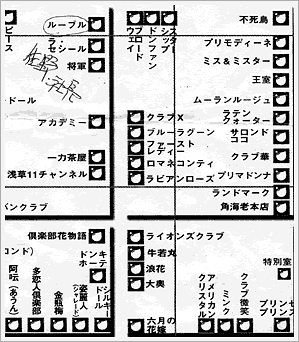 ルーブル
ピース
ラ・セシール
将軍
ドール
アカデミー
一力茶屋
浅草11チャンネル
バンクラブ
ウェイド
ドンファン
不死鳥
プリモディーネ
ミス&ミスター
王室
ムーランルージュ
ラテンクォーター
サロンドココ
クラブ華
プリマドンナ
ランドマーク
角海老本店
クラブX
ブルーラグーン
ファーストレディー
ロマネコンティ
ラビアンローズ
倶楽部花物語
ロンド)
ドンキホーテ
阿吽(あうん)
多恋人倶楽部
金瓶梅
姿麗人
シルキードール
ライオンズクラブ
牛若丸
浪花
大奥
六月の花嫁
特別室
クリスタル
アメリカン
ミンク
クラブ微笑
プリンセス